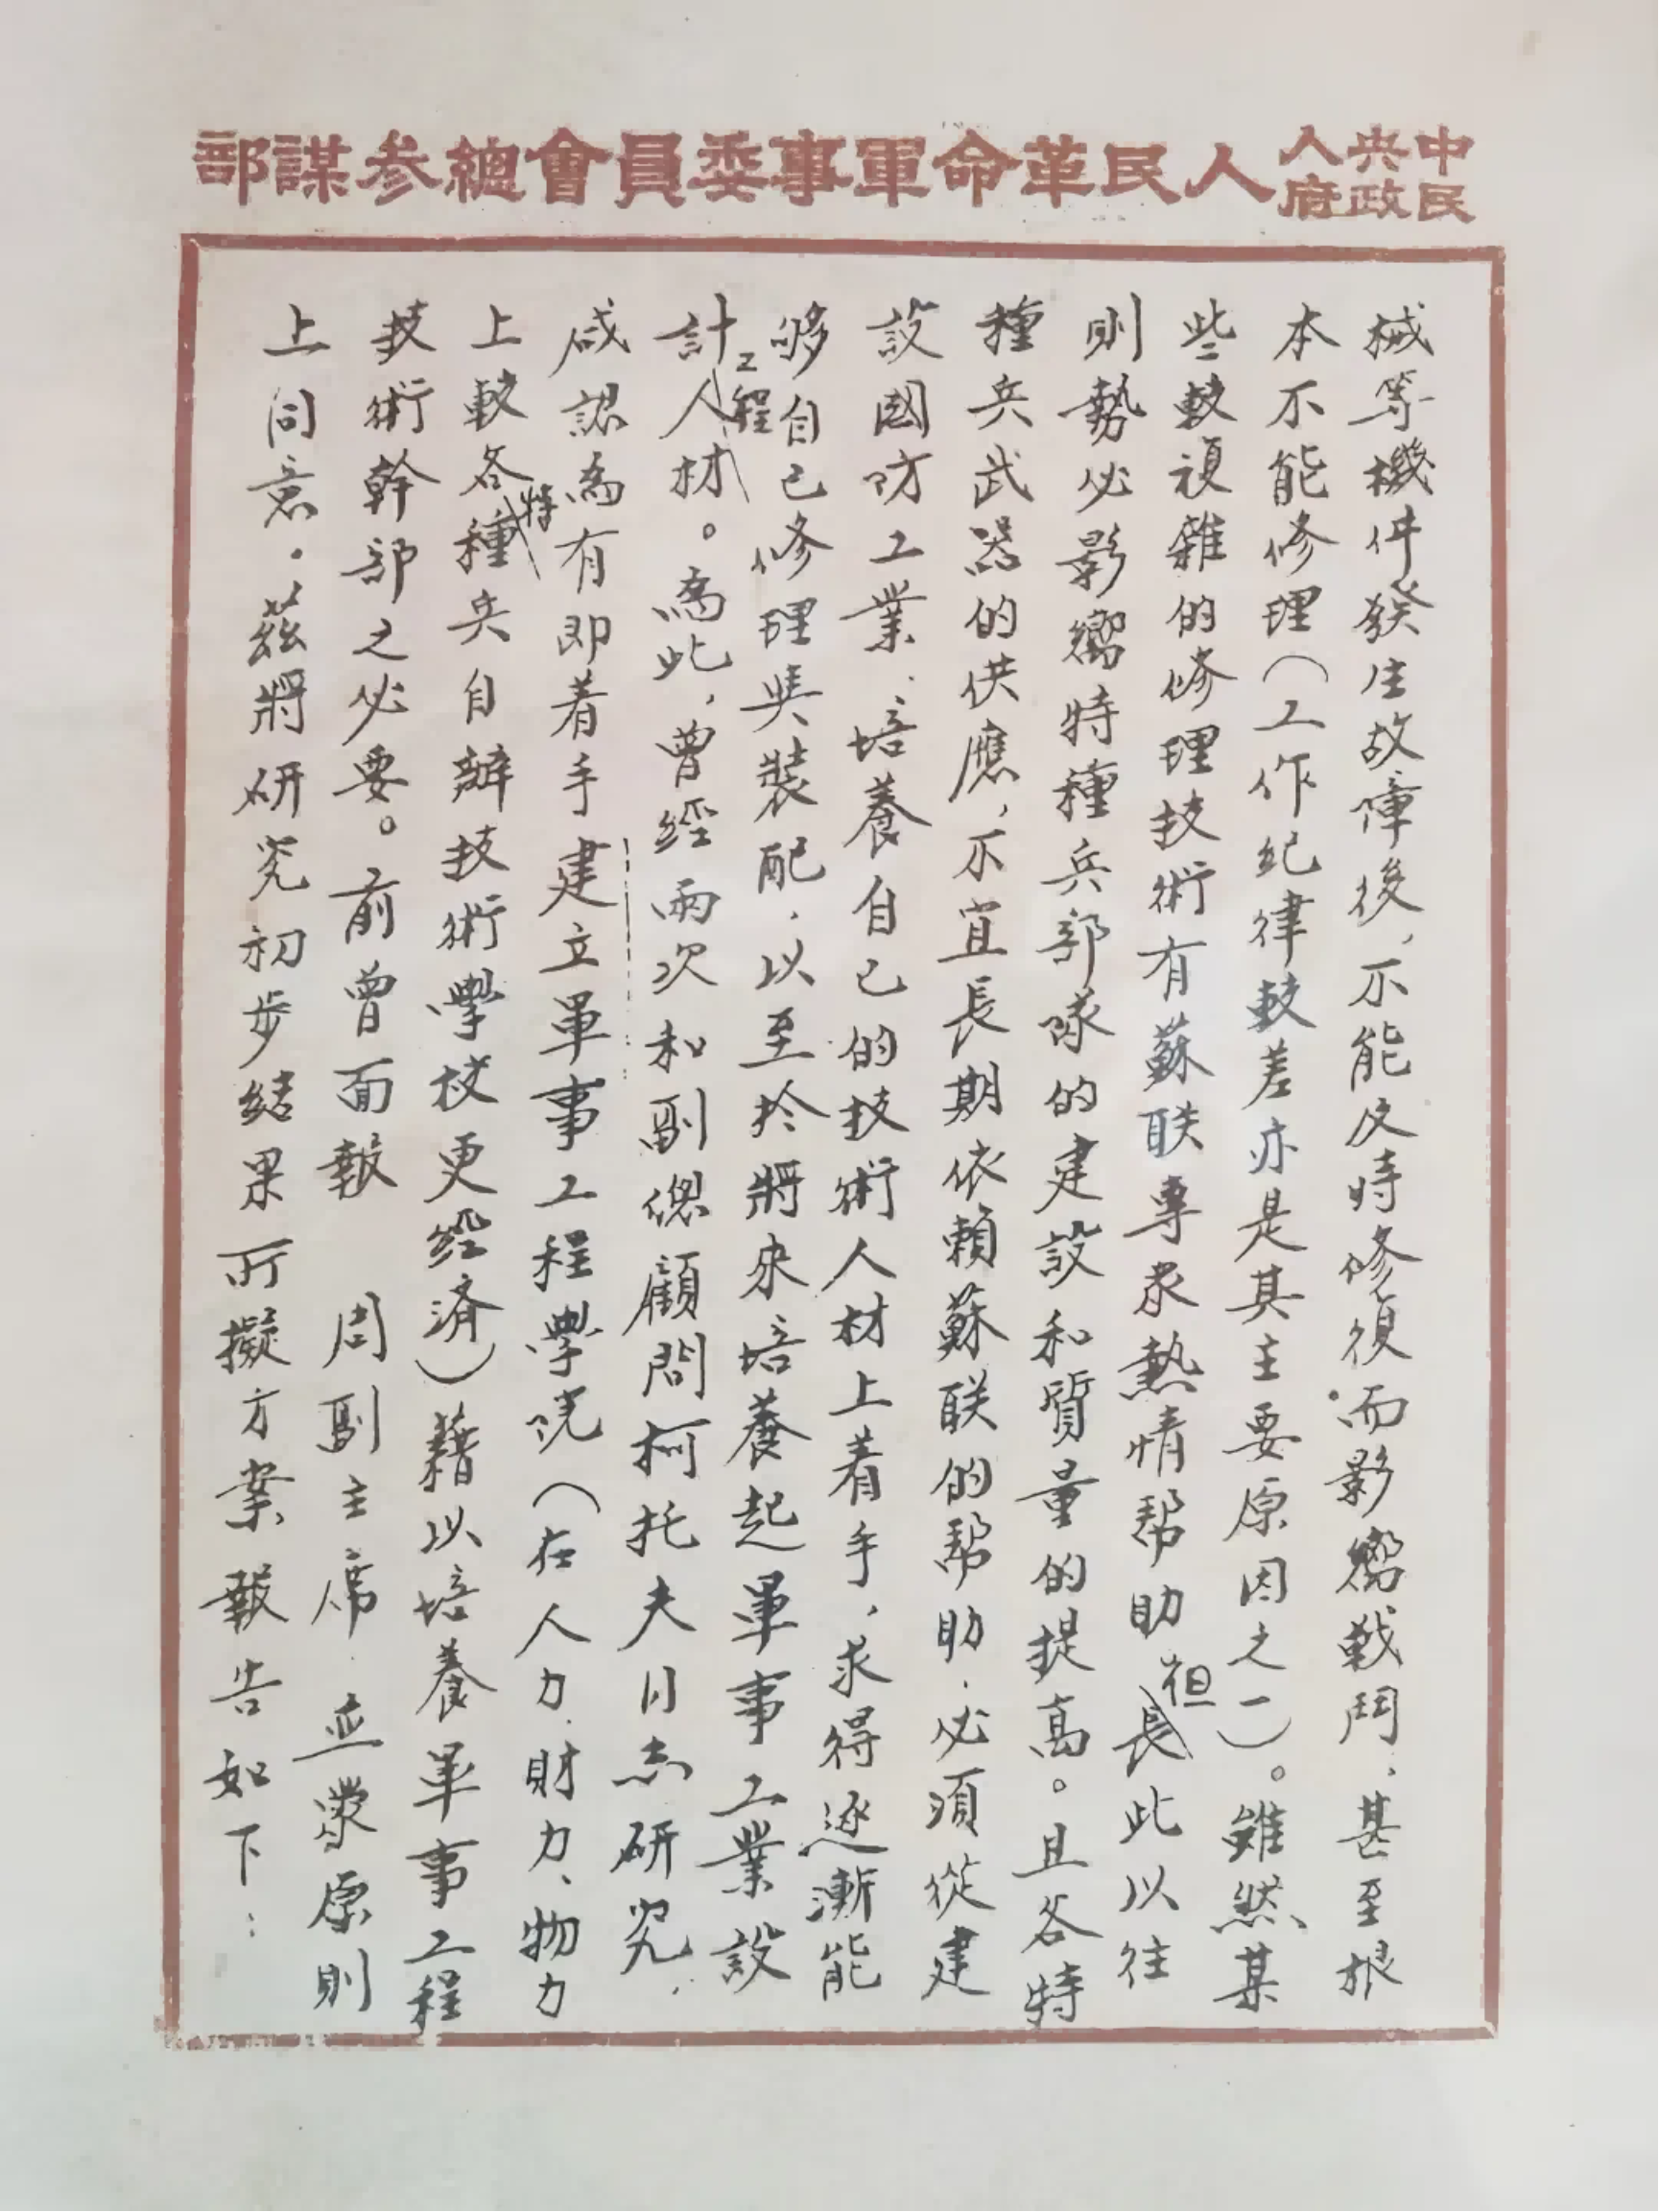 中央人民政府人民革命軍事委員會總参謀部
械等機件發生故障後，不能及時修復而影響戰鬥，甚至根
本不能修理（工作紀律較差亦是其主要原因之一）。雖然某
些較複雜的修理技術有蘇联專家熱情帮助但長此以往
則勢必影響特種兵部隊的建設和質量的提高。且各特
種兵武器的供應，不宜長期依賴蘇联的帮助，必須從建
設國防工業，培養自己的技術人材上着手，求得逐漸能
够自己修理與裝配，以至於將來培養起軍事工業設
計工程人材。為此，曾經兩次和副總顧問柯托夫同志研究，
咸認為有即着手建立軍事工程學院（在人力、財力、物力
上較各特種兵自辦技術學校更經济）藉以培養軍事工程
技術幹部之必要。前曾面報 周副主席，並蒙原則
上同意。茲將研究初步結果所擬方案報告如下：